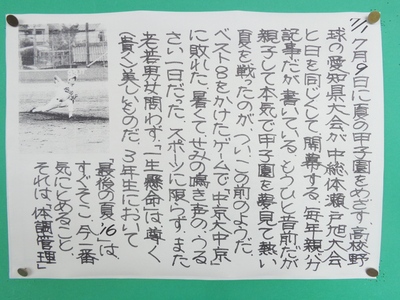 7/1
7月9日に夏の甲子園をめざす、高校野
球の愛知県大会が、中総体瀬戸旭大会
と日を同じくして開幕する。毎年親分
記事だが、書いている。もうひと昔前だが
親子して本気で甲子園を夢見て熱い
夏を戦ったのが、つい、この前のようだ。
ベスト8をかけたゲームで「中京大中京」
に敗れた。暑くて、せみの鳴き声の、うる
さい一日だった。スポーツに限らず、また
老若男女問わず、「一生懸命」は、尊く
(貴く)美しいものだ。3年生において
「最後の夏'16」は、
すぐそこ、今一番
気にとめること、
それは、「体調管理」